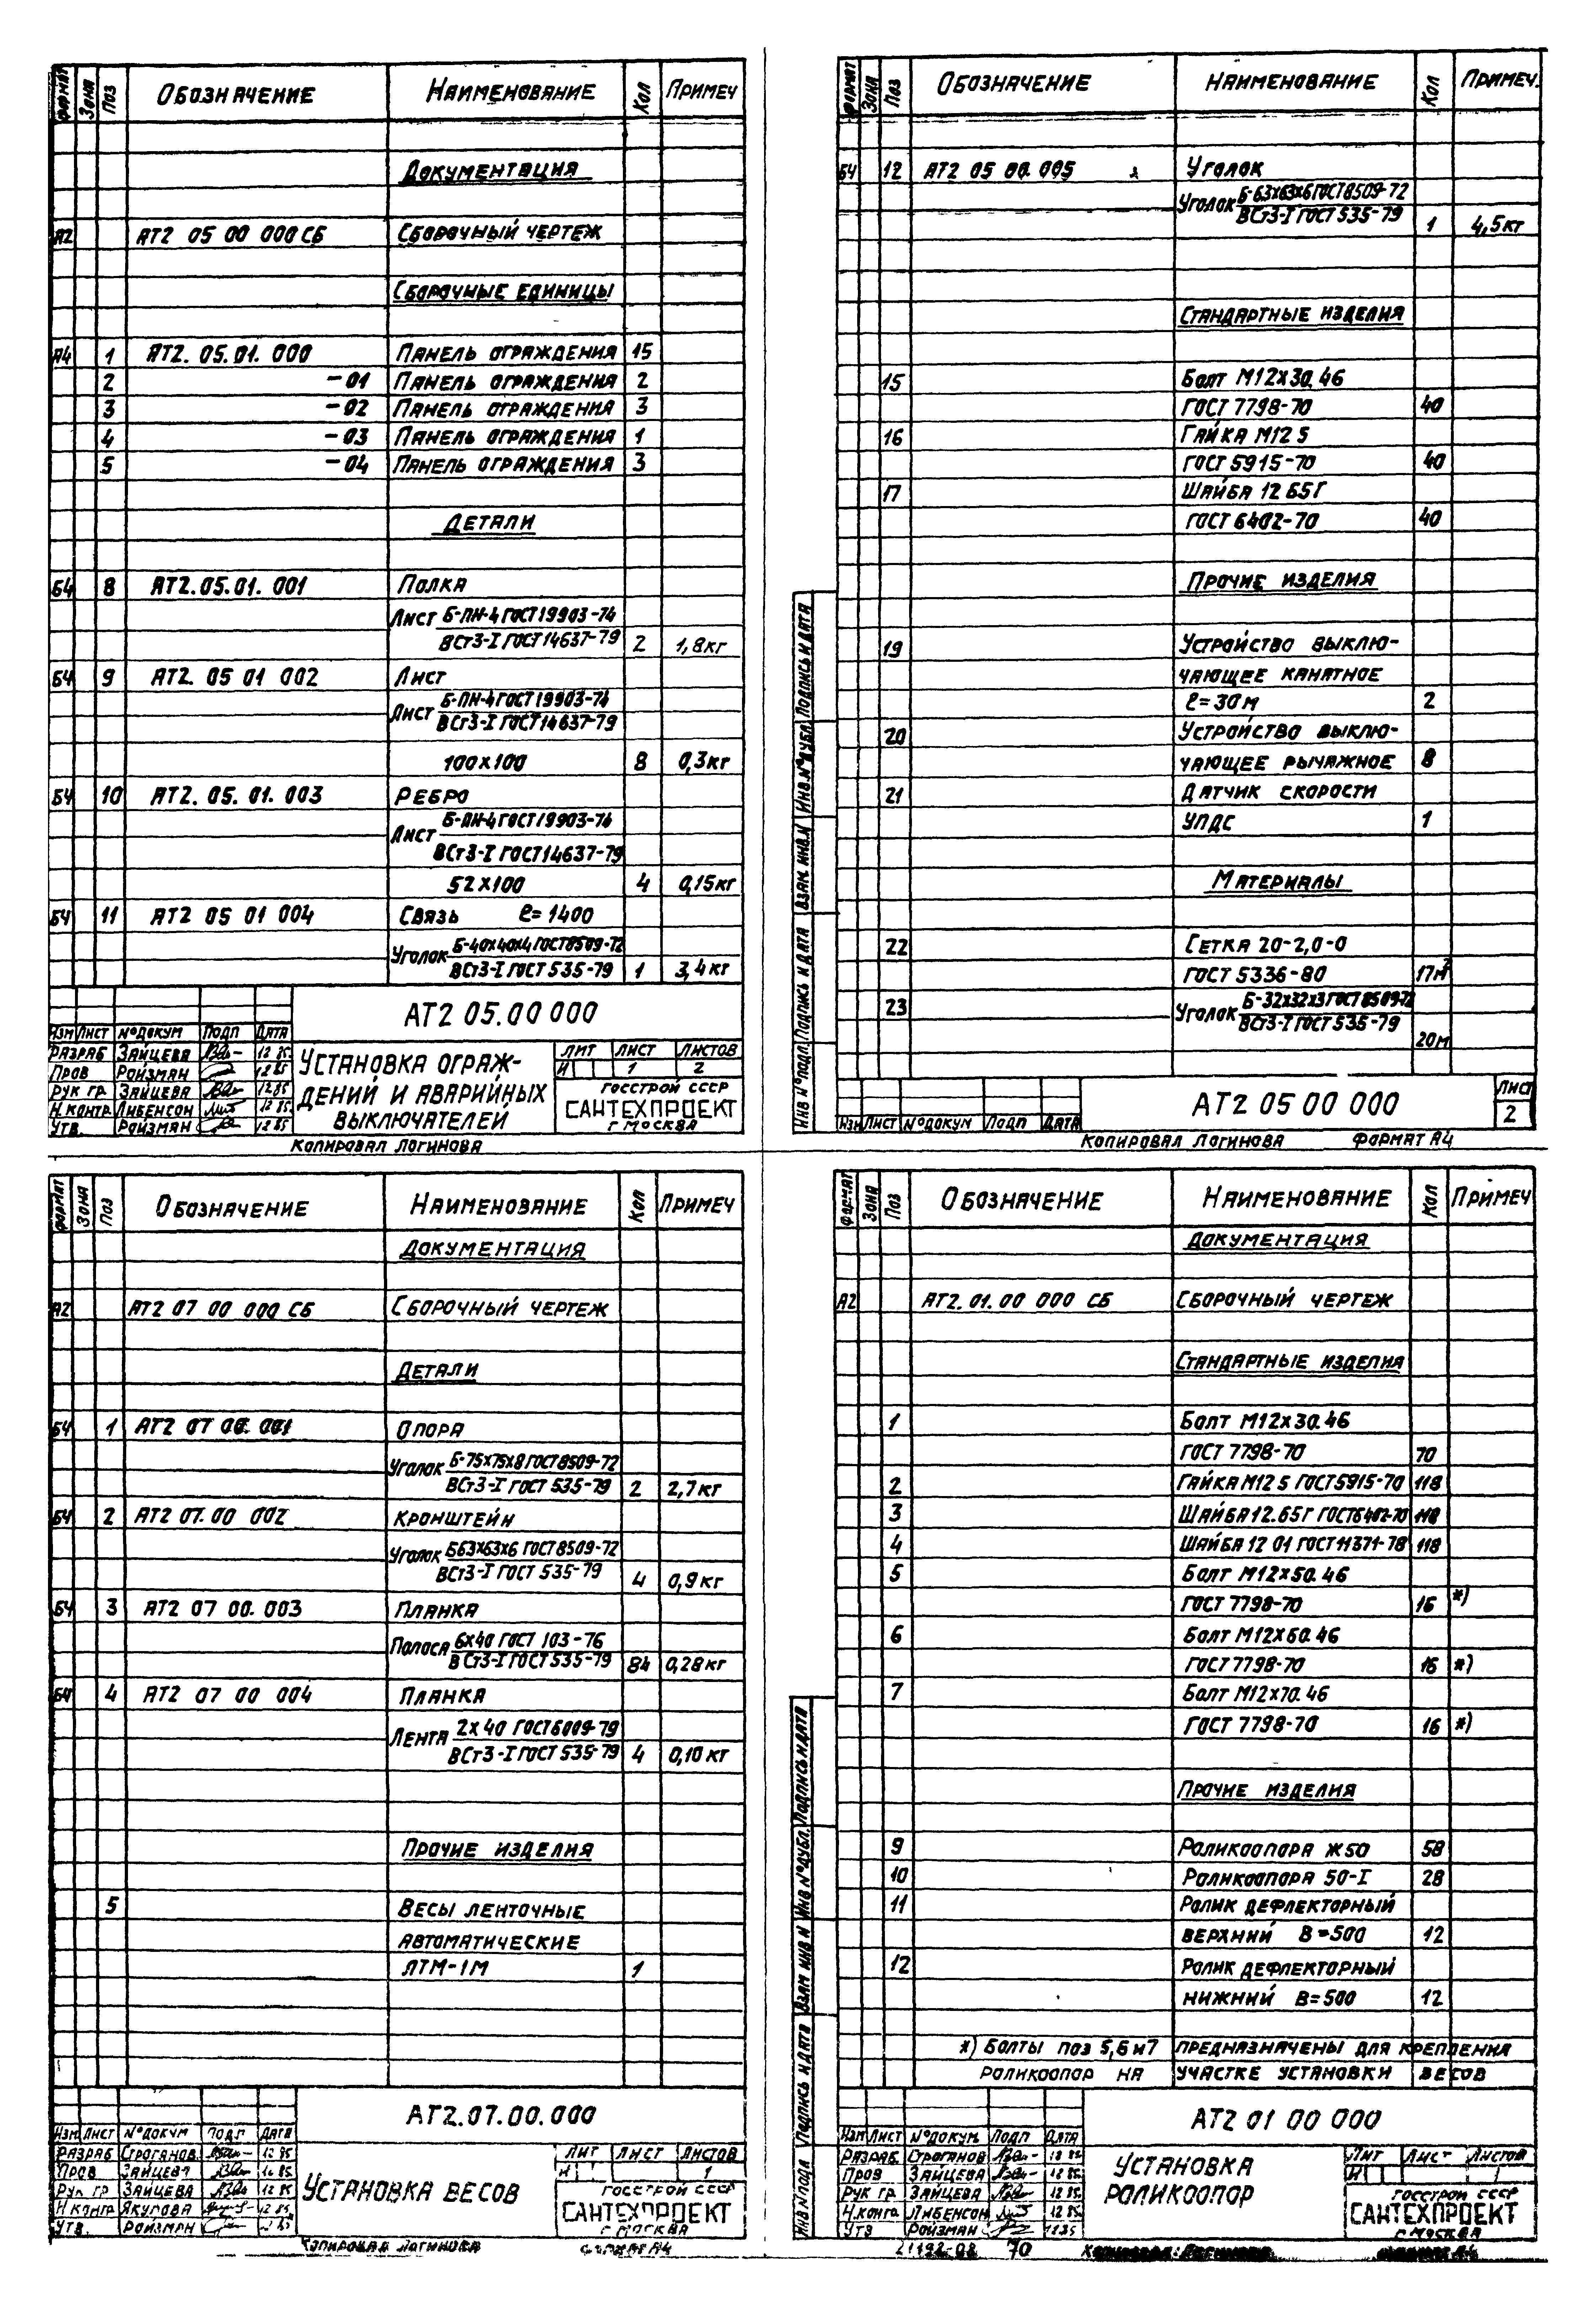 Формат Зона Поз Обозначение Наименование Кол Примеч
Документация
А2 АТ2 05 00 000 СБ Сборочный чертеж
Сборочные единицы
А4 1 АТ2. 05. 01. 000 Панель ограждения 15
2 -01 Панель ограждения 2
3 -02 Панель ограждения 3
4 -03 Панель ограждения 1
5 -04 Панель ограждения 3
Детали
Б4 8 АТ2. 05. 01. 001 Полка
Лист Б-ПН-4 ГОСТ 19903-74
ВСт3-I ГОСТ 14637-79 2 1,8кг
Б4 9 АТ2. 05 01 002 Лист
Лист Б-ПН-4 ГОСТ 19903-74
ВСт3-I ГОСТ 14637-79
100х100 8 0,3кг
Б4 10 АТ2. 05. 01. 003 Ребро
Лист Б-ПН-4 ГОСТ 19903-74
ВСт3-I ГОСТ 14637-79
52х100 4 0,15кг
Б4 11 АТ2 05 01 004 Связь ℓ= 1400
Уголок Б-40х40х4 ГОСТ 8509-72
ВСт3-I ГОСТ 535-79 1 3,4кг
АТ2 05.00 000
Изм Лист № докум Подп Дата
Разраб Зайцева 12 85
Пров Ройзман 12 85
Рук гр. Зайцева 12 85
Н.контр Либенсон 12 85
Утв. Ройзман 12 85
Установка ограж-
дений и аварийных
выключателей
Лит Лист Листов
И 1 2
Госстрой СССР
САНТЕХПРОЕКТ
г Москва
Копировал Логинова
Формат Зона Поз Обозначение Наименование Кол Примеч.
Б4 12 АТ2 05 00. 005 Уголок
Уголок Б-63х63х6 ГОСТ 8509-72
ВСт3-I ГОСТ 535-79 1 4,5кг
Стандартные изделия
15 Болт М12х30.46
ГОСТ 7798-70 40
16 Гайка М12 5
ГОСТ 5915-70 40
17 Шайба 12 65Г
ГОСТ 6402-70 40
Прочие изделия
19 Устройство выклю-
чающее канатное
ℓ= 30м 2
20 Устройство выклю-
чающее рычажное 8
21 Датчик скорости
УПДС 1
Материалы
22 Сетка 20-2,0-0
ГОСТ 5336-80 17м²
23 Уголок Б-32х32х3 ГОСТ 8509-72
ВСт3-I ГОСТ 535-79
20м
Инв № подл Подпись и дата Взам. инв. № Инв. № дубл. Подпись и дата
Изм Лист № докум Подп Дата
АТ2 05 00 000
Лист
2
Копировал Логинова Формат А4
Формат Зона Поз Обозначение Наименование Кол Примеч
Документация
А2 АТ2 07 00 000 СБ Сборочный чертеж
Детали
Б4 1 АТ2 07 00. 001 Опора
Уголок Б-75х75х8 ГОСТ 8509-72
ВСт3-I ГОСТ 535-79 2 2,7кг
Б4 2 АТ2 07. 00 002 Кронштейн
Уголок Б63х63х6 ГОСТ 8509-72
ВСт3-I ГОСТ 535-79
4 0,9кг
Б4 3 АТ2 07 00. 003 Планка
Полоса 6х40 ГОСТ 103-76
ВСт3-I ГОСТ 535-79 84 0,28кг
Б4 4 АТ2 07 00 004 Планка
Лента 2х40 ГОСТ 6009-79
ВСт3-I ГОСТ 535-79 4 0,10кг
Прочие изделия
5 Весы ленточные
автоматические
ЛТМ-1М 1
АТ2.07.00.000
Изм Лист № докум Подп Дата
Разраб Строганов 12 85
Пров Зайцева 12 85
Рук гр Зайцева 12 85
Н контр Якупова 12 85
Утв. Ройзман
Установка весов
Лит Лист Листов
И 1
Госстрой СССР
САНТЕХПРОЕКТ
г Москва
Копировал Логинова Формат А4
Формат Зона Поз Обозначение Наименование Кол Примеч
Документация
А2 АТ2. 01. 00 000 СБ Сборочный чертеж
Стандартные изделия
1 Болт М12х30.46
ГОСТ 7798-70 70
2 Гайка М12 5 ГОСТ 5915-70 118
3 Шайба 12.65Г ГОСТ 6402-70 118
4 Шайба 12 01 ГОСТ 11371-78 118
5 Болт М12х50.46
ГОСТ 7798-70 16 *)
6 Болт М12х60.46
ГОСТ 7798-70 16 *)
7 Болт М12х70.46
ГОСТ 7798-70 16 *)
Прочие изделия
9 Роликоопора Ж50 58
10 Роликоопора 50-I 28
11 Ролик дефлекторный
верхний В=500 12
12 Ролик дефлекторный
нижний В=500 12
*) Болты поз 5,6 и 7 предназначены для крепления
роликоопор на участке установки весов
Инв № подл Подпись и дата Взам инв № Инв № дубл. Подпись и дата
АТ2 01 00 000
Изм Лист № докум Подп Дата
Разраб. Строганов 12 85
Пров Зайцева 12 85
Рук гр. Зайцева 12 85
Н.контр Либенсон 12 85
Утв Ройзман 12 85
Установка
роликоопор
Лит Лист Листов
И 1
Госстрой СССР
САНТЕХПРОЕКТ
г Москва
21192-02 70